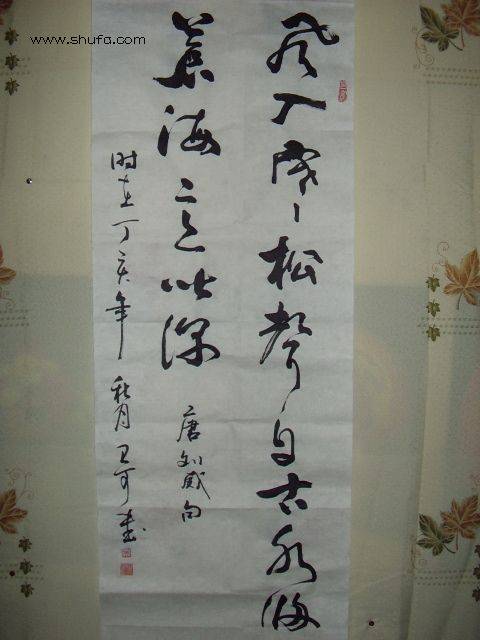 www.shufa.com
风入寒松聲自古水归
蒼海意皆深
唐刘威句
时在丁亥年秋月卫可書